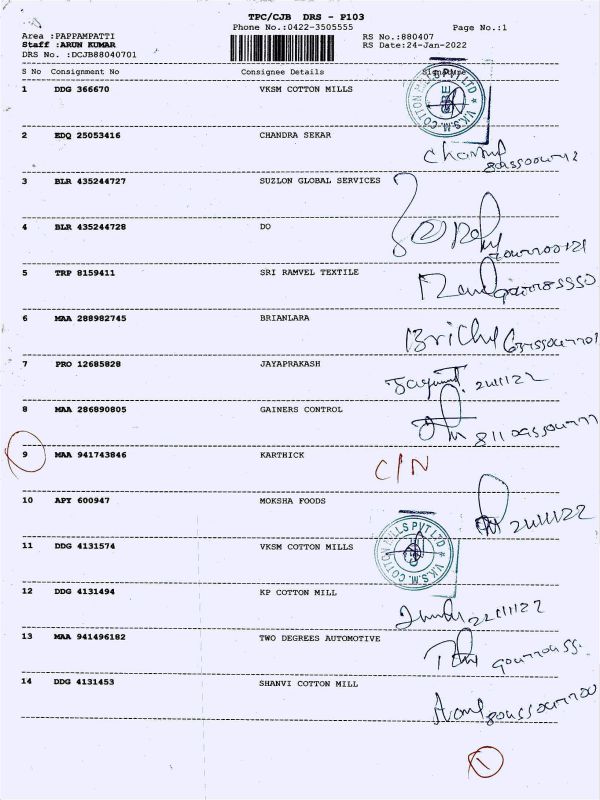 TPC/CJB DRS - P103
Phone No.:0422-3505555 Page No.:1
Area :PAPPAMPATTI RS No.:880407
Staff :ARUN KUMAR RS Date:24-Jan-2022
DRS No. :DCJB88040701
S No Consignment No Consignee Details Signature
1 DDG 366670 VKSM COTTON MILLS
V.K.S.M. COTTON MILLS PVT LTD
2 EDQ 25053416 CHANDRA SEKAR
3 BLR 435244727 SUZLON GLOBAL SERVICES
4 BLR 435244728 DO
5 TRP 8159411 SRI RAMVEL TEXTILE
6 MAA 288982745 BRIANLARA
7 PRO 12685828 JAYAPRAKASH
8 MAA 286890805 GAINERS CONTROL
9 MAA 941743846 KARTHICK C/N
10 APY 600947 MOKSHA FOODS
11 DDG 4131574 VKSM COTTON MILLS
V.K.S.M. COTTON MILLS PVT LTD
12 DDG 4131494 KP COTTON MILL
13 MAA 941496182 TWO DEGREES AUTOMOTIVE
14 DDG 4131453 SHANVI COTTON MILL
1